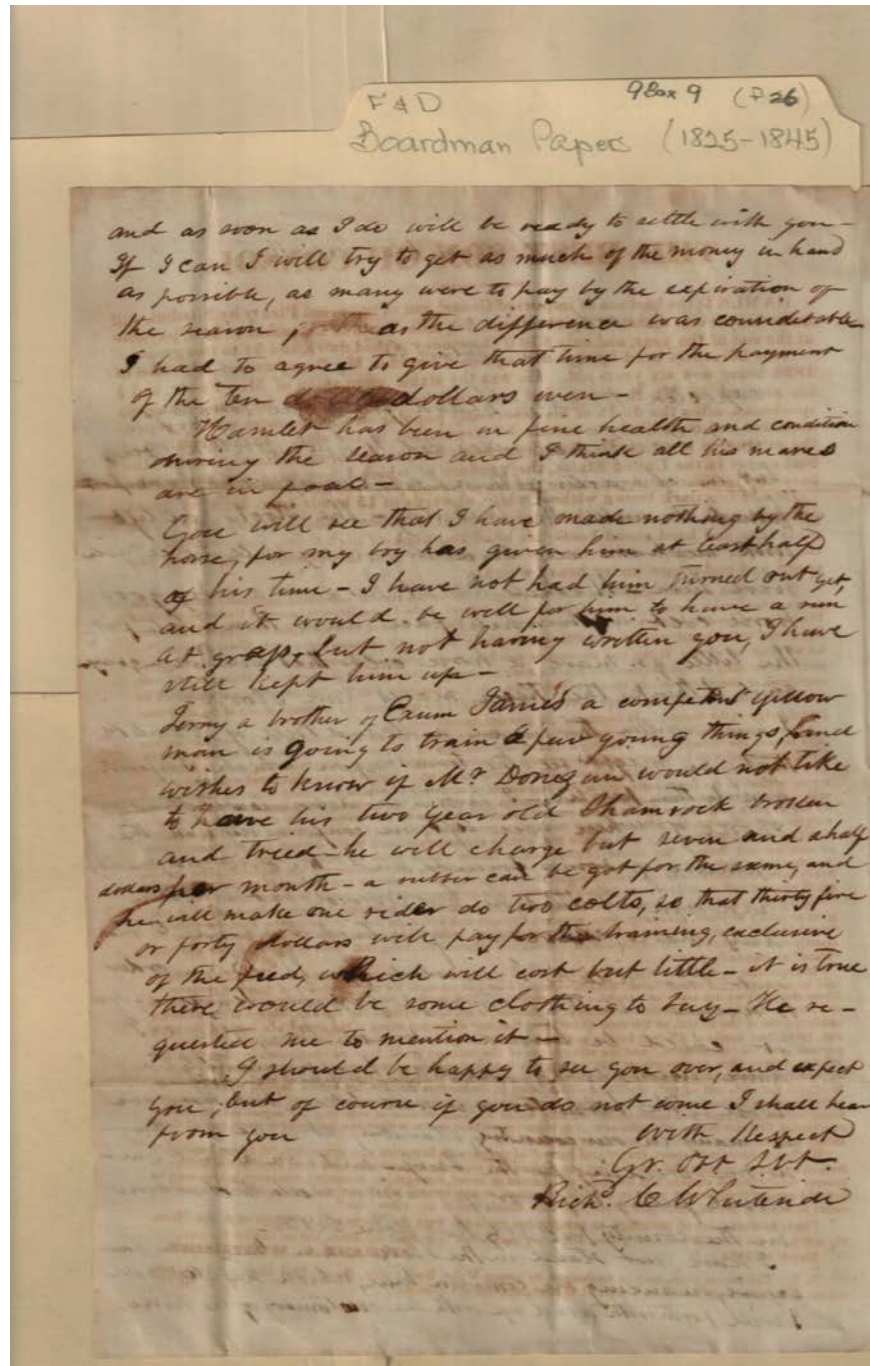 F & D
9 Box 9 (F 26)
Boardman Papers (1825-1845)
and as soon as I do will be ready to settle with you-
If I can I will try to get as much of the money in hand
as possible, as many were to pay by the expiration of
the season as the difference was considerable
I had to agree to give that time for the payment
of the ten dollars even -
Hamlet has been in fine health and condition
during the season and I think all his mares
are in foal -
You will see that I have made nothing by the
horse, for my boy has given him at least half
of his time - I have not had him turned out yet,
and it would be well for him to have a run
at grass, but not having written you, I have
still kept him up -
a brother of a competent yellow
man is going to train a few young things, and
wishes to know if Mr Donegan would not like
to have his two year old Shamrock broken
and tried - he will charge but seven and a half
dollars per month - a rubber can be got for the same, and
he will make one rider do two colts, so that thirty five
or forty dollars will pay for the training, exclusive
of the feed, which will cost but little - it is true
there would be some clothing to buy - He re-
quested me to mention it -
I should be happy to see you over, and expect
you, but of course if you do not come I shall hear
from you
With Respect
Yr. Obt Svt.
Richd. C